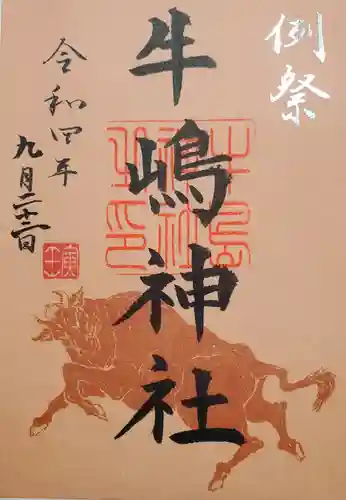 例祭
牛嶋神社
牛嶋
神社
之印
令和四年
九月二十二日
壬寅